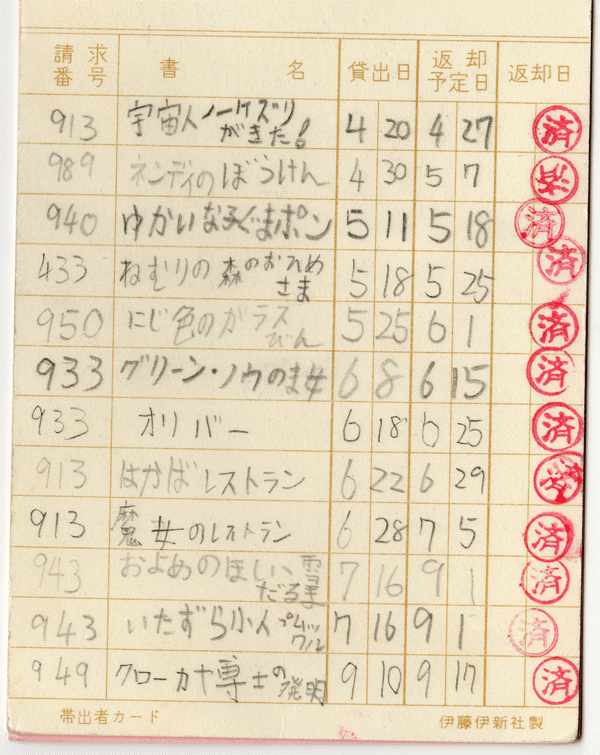 請求番号 書名 貸出日 返却予定日 返却日
913 宇宙人ノーケズリがきた! 4 20 4 27 済
989 ネンディのぼうけん 4 30 5 7 済
940 ゆかいな子ぐまポン 5 11 5 18 済
433 ねむりの森のおひめさま 5 18 5 25 済
950 にじ色のガラスびん 5 25 6 1 済
933 グリーン・ノウのま女 6 8 6 15 済
933 オリバー 6 18 6 25 済
913 はかばレストラン 6 22 6 29 済
913 魔女のレストラン 6 28 7 5 済
943 およめのほしい雪だるま 7 16 9 1 済
943 いたずら小人プムックル 7 16 9 1 済
949 クローカ博士の発明 9 10 9 17 済
帯出者カード 伊藤伊新社製